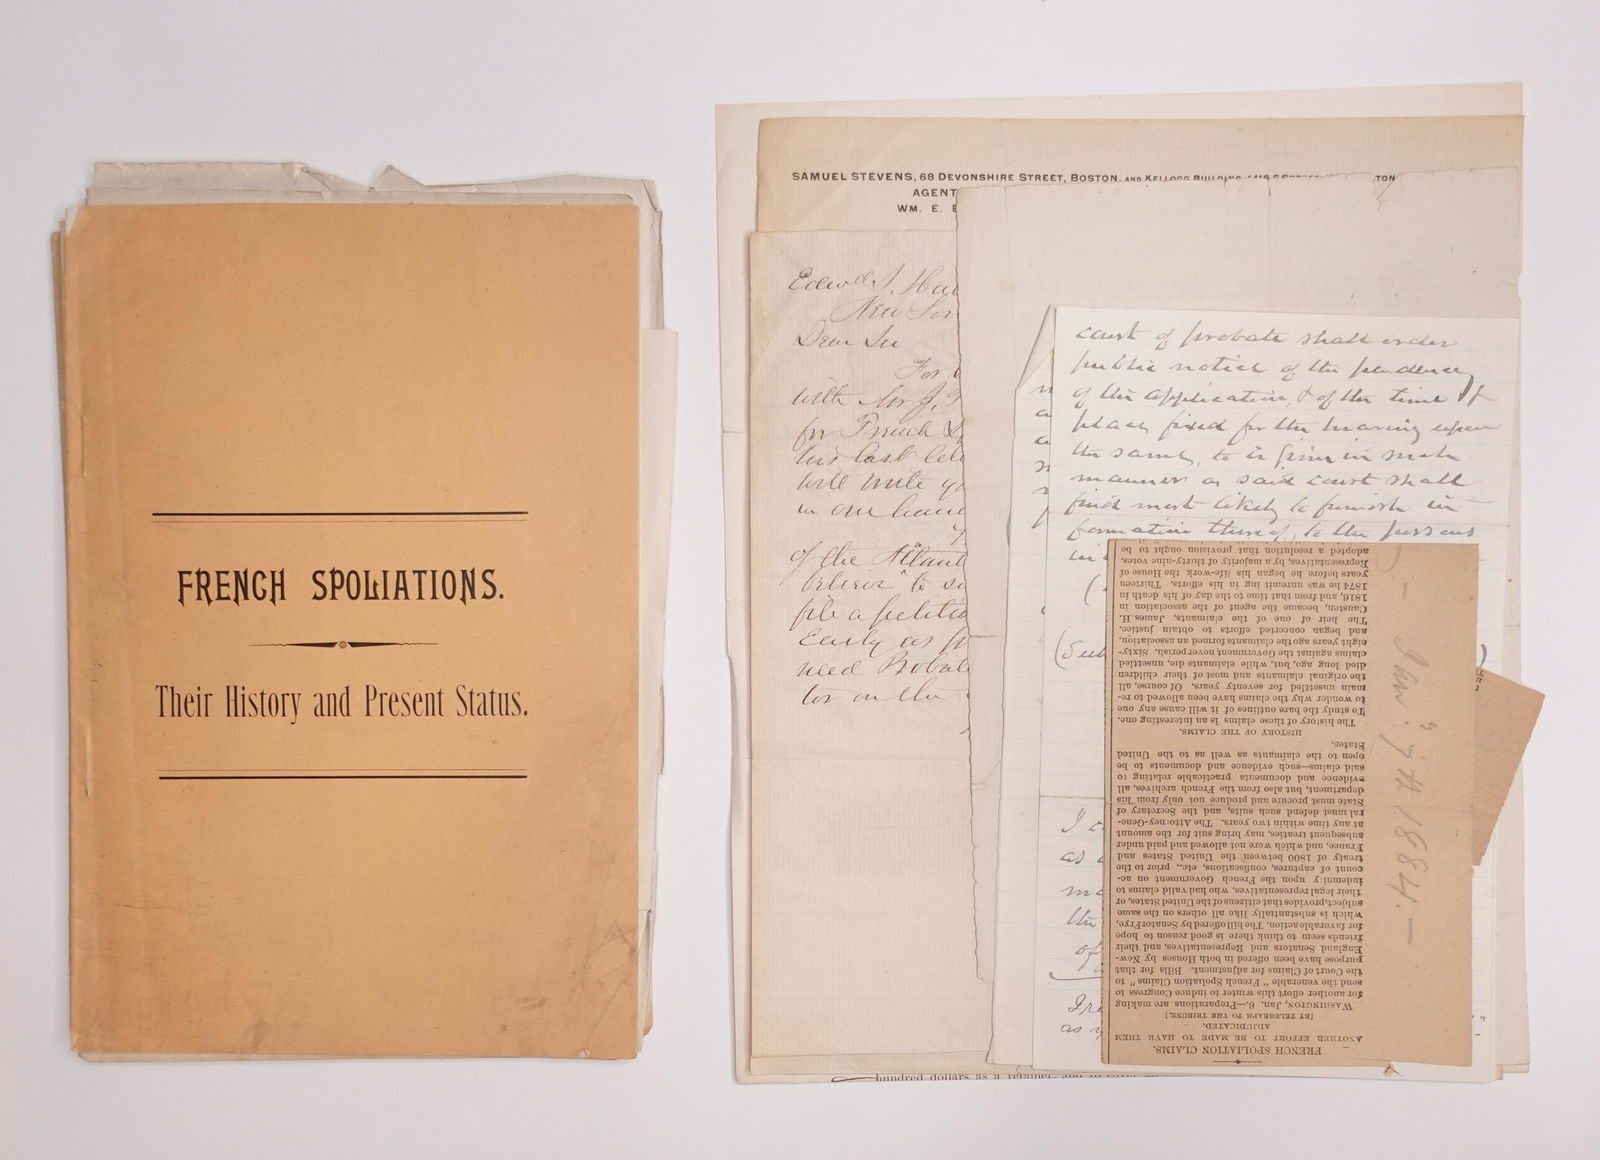 FRENCH SPOLIATIONS.
Their History and Present Status.
SAMUEL STEVENS, 68 DEVONSHIRE STREET, BOSTON, AND KELLOGG BUILDING, 1416 F STREET TON
AGENT
WM. E.
Edwd J. Ha
New
Dear Sir
For
with Mr J.
for French S
his last let
will write yo
in our hand
of the
believe to
file a petitio
Early as
need Probat
tor on the
court of probate shall order
public notice of the pendency
of the application, & of the time &
place fixed for the hearing upon
the same, to be given in such
manner as said court shall
find most likely to furnish in
formation thereof, to the persons
in
I c
as
the
of
as
FRENCH SPOLIATION CLAIMS.
ANOTHER EFFORT TO BE MADE TO HAVE THEM
ADJUDICATED.
[BY TELEGRAPH TO THE TRIBUNE.]
WASHINGTON, Jan. 6.—Preparations are making
for another effort this winter to induce Congress to
send the venerable "French Spoliation Claims" to
the Court of Claims for adjustment. Bills for that
purpose have been offered in both Houses by New-
England Senators and Representatives, and their
friends seem to think there is good reason to hope
for favorable action. The bill offered by Senator Frye,
which is substantially like all others on the same
subject, provides that citizens of the United States, or
their legal representatives, who had valid claims to
indemnity upon the French Government on ac-
count of captures, confiscations, etc., prior to the
treaty of 1800 between the United States and
France, and which were not allowed and paid under
subsequent treaties, may bring suit for the amount
at any time within two years. The Attorney-Gene-
ral must defend such suits, and the Secretary of
State must procure and produce not only from his
department, but also from the French archives, all
evidence and documents practicable relating to
said claims—such evidence and documents to be
open to the claimants as well as to the United
States.
HISTORY OF THE CLAIMS.
The history of these claims is an interesting one.
To study the bare outlines of it will cause any one
to wonder why the claims have been allowed to re-
main unsettled for seventy years. Of course, all
the original claimants and most of their children
died long ago, but, while claimants die, unsettled
claims against the Government never perish. Sixty-
eight years ago the claimants formed an association,
and began concerted efforts to obtain justice.
The heir of one of the claimants, James H.
Causten, became the agent of the association in
1816, and from that time to the day of his death in
1874 he was unremitting in his efforts. Thirteen
years before he began his life-work the House of
Representatives, by a majority of thirty-nine votes,
adopted a resolution that provision ought to be
Jan? 7th 1884.—
hundred dollars as a retainer